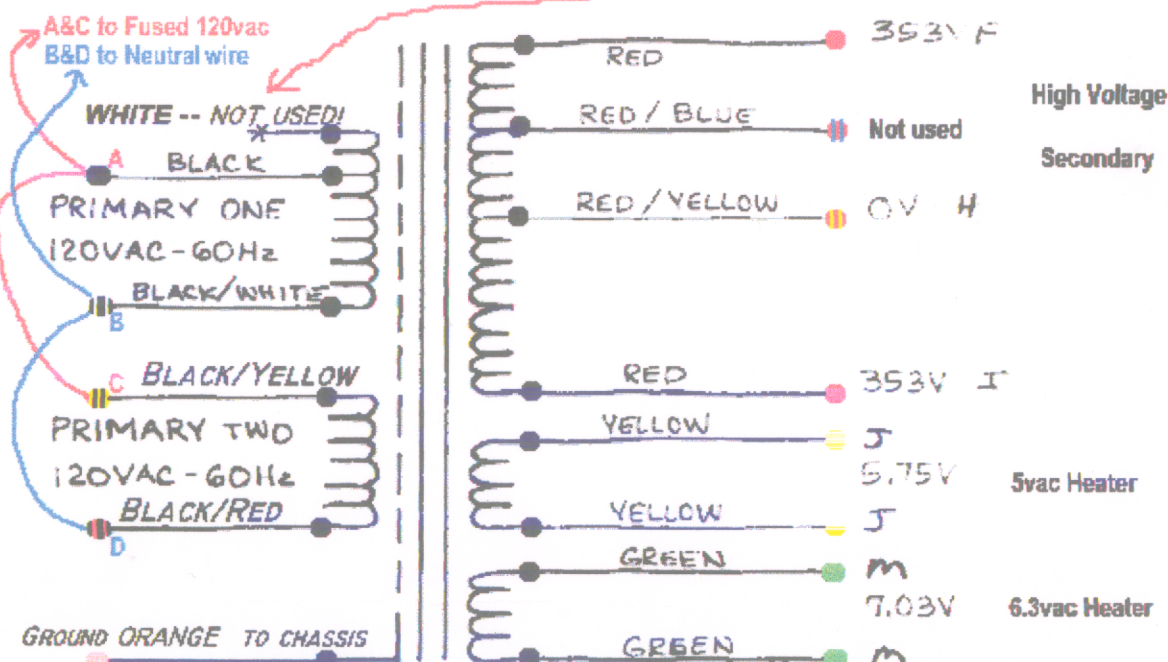 A&C to Fused 120vac
B&D to Neutral wire
WHITE -- NOT USED!
A
BLACK
PRIMARY ONE
120VAC-60Hz
BLACK/WHITE
B
C
BLACK/YELLOW
PRIMARY TWO
120VAC-60Hz
BLACK/RED
D
GROUND ORANGE TO CHASSIS
RED
353V F
RED/BLUE
Not used
High Voltage
Secondary
RED/YELLOW
0V H
RED
353V I
YELLOW
J
5.75V
5vac Heater
YELLOW
J
GREEN
M
7.03V
6.3vac Heater
GREEN
M